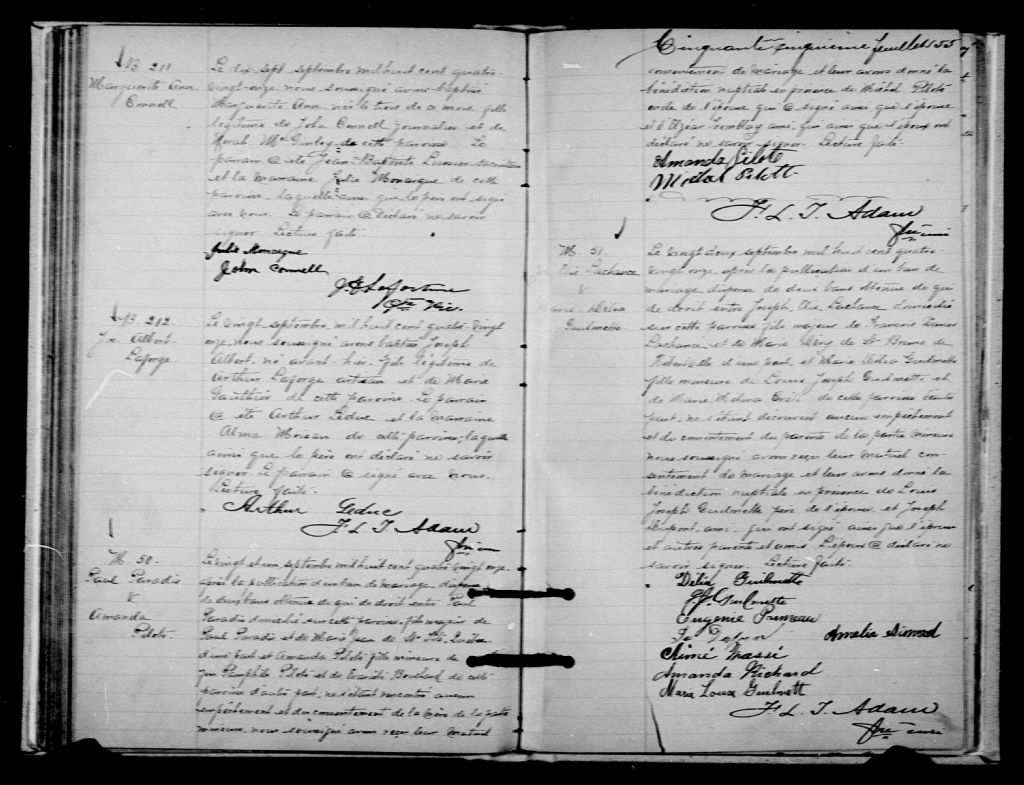 B 211
Marguerite Ann
Connell
Le dix sept septembre mil huit cent quatre-
vingt-onze nous soussigné avons baptisé
Marguerite Ann, née le trois de ce mois fille
légitime de John Connell journalier et de
Norah de cette paroisse. Le
parrain a été Jean-Baptiste
et la marraine Julie Monarque de cette
paroisse, laquelle ainsi que le père ont signé
avec nous. Le parrain a déclaré ne savoir
signer. Lecture faite.
Julie Monarque
John Connell
J. E. Laforture
Ptre Vic.
B 212
Jos Albert
Laforge
Le vingt septembre, mil huit cent quatre-vingt
onze, nous soussigné avons baptisé Joseph
Albert, né avant-hier, fils légitime de
Arthur Laforge artisan et de Marie
Gauthier de cette paroisse. Le parrain
a été Arthur Leduc et la marraine
Alma Moreau de cette paroisse, laquelle
ainsi que le père ont déclaré ne savoir
signer. Le parrain a signé avec nous.
Lecture faite.
Arthur Leduc
F. L. T. Adam
Ptre curé
M. 50.
Paul Paradis
&
Amanda
Pilote
Le vingt et un septembre mil huit cent quatre vingt onze,
après la publication d'un ban de mariage, dispense
de deux bans obtenue de qui de droit entre Paul
Paradis domicilié sur cette paroisse, fils majeur de
Paul Paradis et de Marie Jean de
d'une part et Amanda Pilote fille mineure de
Pamphile Pilote et de Bouchard de cette
paroisse d'autre part, ne s'étant rencontré aucun
empêchement et du consentement de la mère de la partie
mineure, nous soussigné avons reçu leur mutuel
Cinquante cinquième feuillet 55
consentement de mariage et leur avons donné la
bénédiction nuptiale en présence de Michel Pilote
oncle de l'épouse qui a signé ainsi que l'épouse
et d'Elzéar Tremblay ami, qui ainsi que l'époux ont
déclaré ne savoir signer. Lecture faite.
Amanda Pilote
Pilott
F. L. T. Adam
Ptre curé
M. 51.
Elie Lachance
&
Marie Délia
Guilmette
Le vingt deux septembre mil huit cent quatre-
vingt onze après la publication d'un ban de
mariage dispense de deux bans obtenue de qui
de droit entre Joseph Elie Lachance domicilié
sur cette paroisse fils majeur de François
Lachance et de Marie de St Bruno de
d'une part, et Marie Délia Guilmette
fille mineure de Louis Joseph Guilmette et
de Marie Melina de cette paroisse d'autre
part, ne s'étant découvert aucun empêchement
et du consentement des parents de la partie mineure
nous soussigné avons reçu leur mutuel con-
sentement de mariage et leur avons donné la
bénédiction nuptiale en présence de Louis
Joseph Guilmette père de l'épouse et Joseph
Dupont ami, qui ont signé ainsi que l'épouse
et autres parents et amis. L'époux a déclaré ne
savoir signer. Lecture faite.
Délia Guilmette
Guilmette
Eugenie Primeau
Amelia Simard
Aimé Massé
Amanda Richard
Marie Louise Guilmett
F. L. T. Adam
Ptre curé